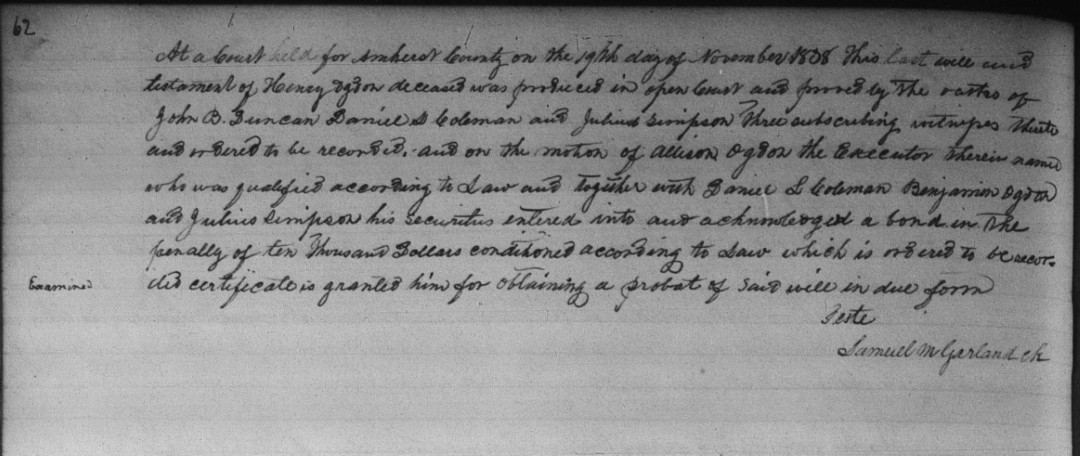 62
At a Court held for Amherst County on the 19th day of November 1838 This last will and
testament of Henry Ogdon deceased was produced in open Court and proved by the oaths of
John B. Duncan Daniel L Coleman and Julius Simpson Three subscribing witnesses thereto
and ordered to be recorded. and on the motion of Allison Ogdon the Executor therein named
who was qualified according to Law and together with Daniel L Coleman Benjamin Ogdon
and Julius Simpson his securities entered into and acknowledged a bond in the
penalty of ten Thousand Dollars conditioned according to Law which is ordered to be recor-
Examined ded certificate is granted him for obtaining a probat of said will in due form
Teste
Samuel M Garland Ck